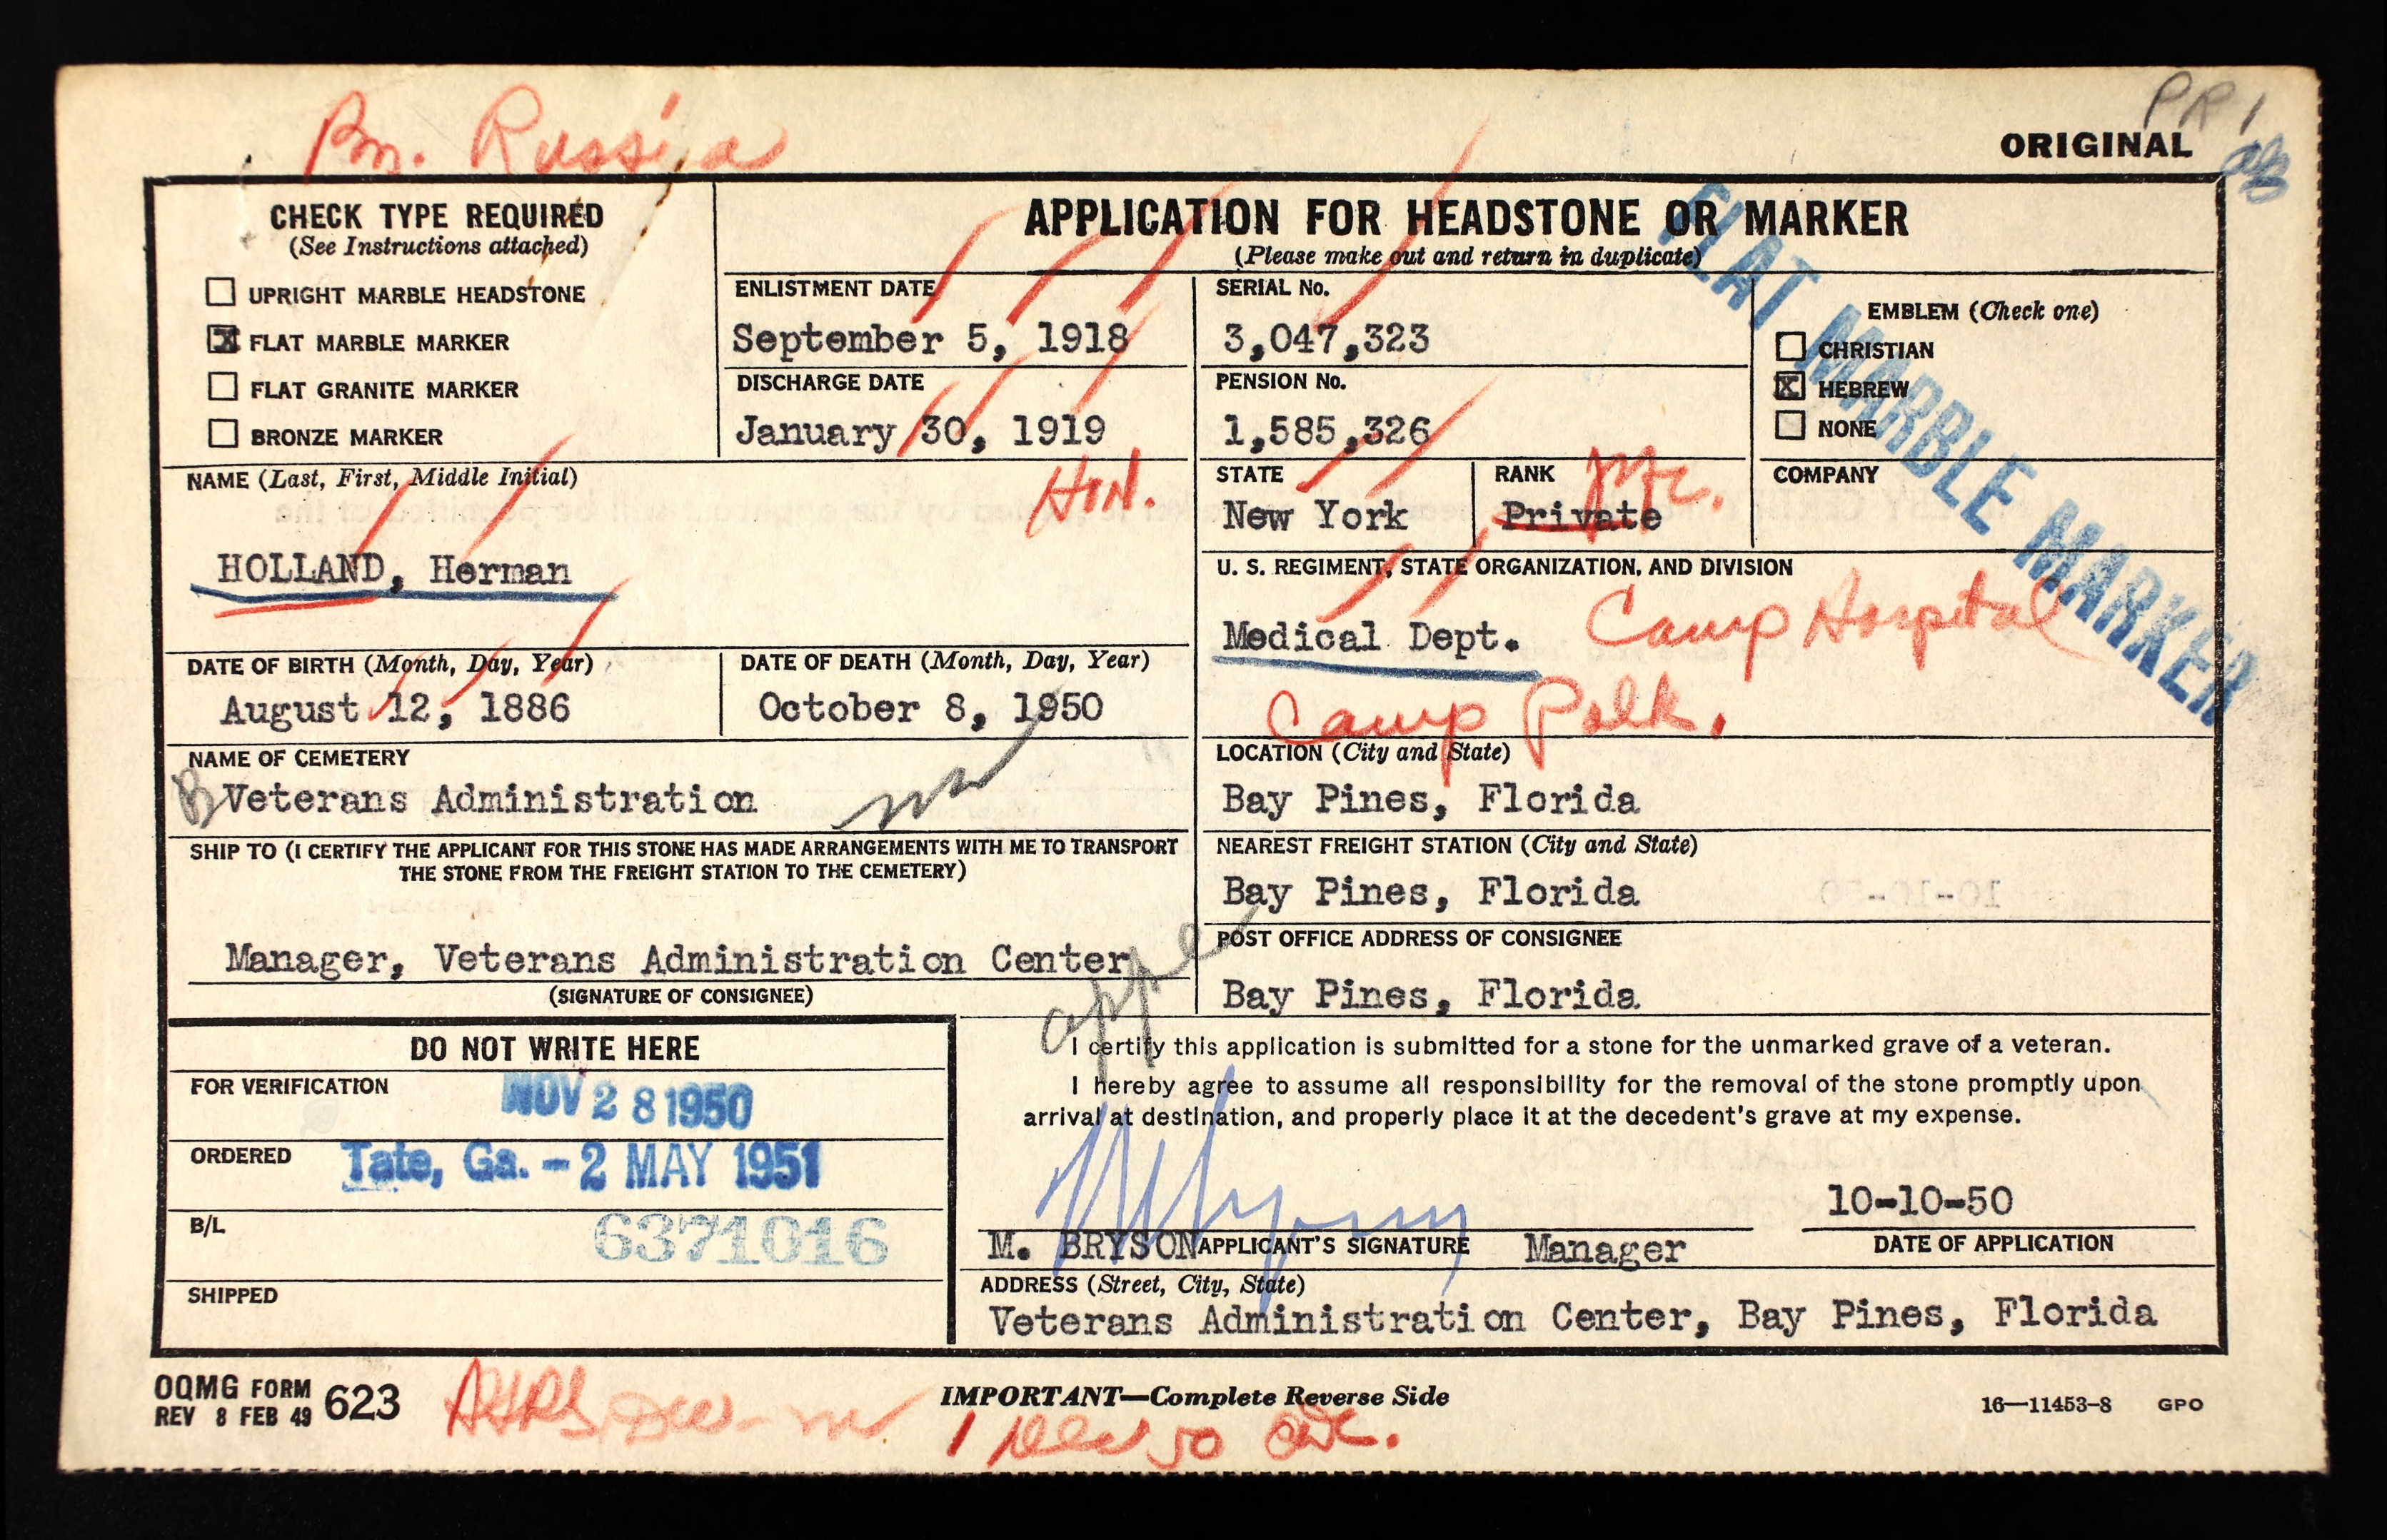 Bn. Russia
PR 1
ORIGINAL
CHECK TYPE REQUIRED
(See Instructions attached)
UPRIGHT MARBLE HEADSTONE
X FLAT MARBLE MARKER
FLAT GRANITE MARKER
BRONZE MARKER
APPLICATION FOR HEADSTONE OR MARKER
(Please make out and return in duplicate)
FLAT MARBLE MARKER
ENLISTMENT DATE
September 5, 1918
SERIAL No.
3,047,323
EMBLEM (Check one)
CHRISTIAN
X HEBREW
NONE
DISCHARGE DATE
January 30, 1919
PENSION No.
1,585,326
NAME (Last, First, Middle Initial)
Hon.
HOLLAND, Herman
STATE
New York
RANK
Private
Pfc.
COMPANY
U. S. REGIMENT, STATE ORGANIZATION, AND DIVISION
Medical Dept. Camp Hospital
Camp Polk.
DATE OF BIRTH (Month, Day, Year)
August 12, 1886
DATE OF DEATH (Month, Day, Year)
October 8, 1950
NAME OF CEMETERY
B Veterans Administration
LOCATION (City and State)
Bay Pines, Florida
SHIP TO (I CERTIFY THE APPLICANT FOR THIS STONE HAS MADE ARRANGEMENTS WITH ME TO TRANSPORT
THE STONE FROM THE FREIGHT STATION TO THE CEMETERY)
Manager, Veterans Administration Center
(SIGNATURE OF CONSIGNEE)
NEAREST FREIGHT STATION (City and State)
Bay Pines, Florida
POST OFFICE ADDRESS OF CONSIGNEE
Bay Pines, Florida
DO NOT WRITE HERE
FOR VERIFICATION
NOV 28 1950
ORDERED
Tate, Ga. - 2 MAY 1951
B/L
6371016
SHIPPED
I certify this application is submitted for a stone for the unmarked grave of a veteran.
I hereby agree to assume all responsibility for the removal of the stone promptly upon
arrival at destination, and properly place it at the decedent's grave at my expense.
10-10-50
M. BRYSON APPLICANT'S SIGNATURE Manager
DATE OF APPLICATION
ADDRESS (Street, City, State)
Veterans Administration Center, Bay Pines, Florida
OQMG FORM 623
REV 8 FEB 49
IMPORTANT—Complete Reverse Side
16—11453-8 GPO